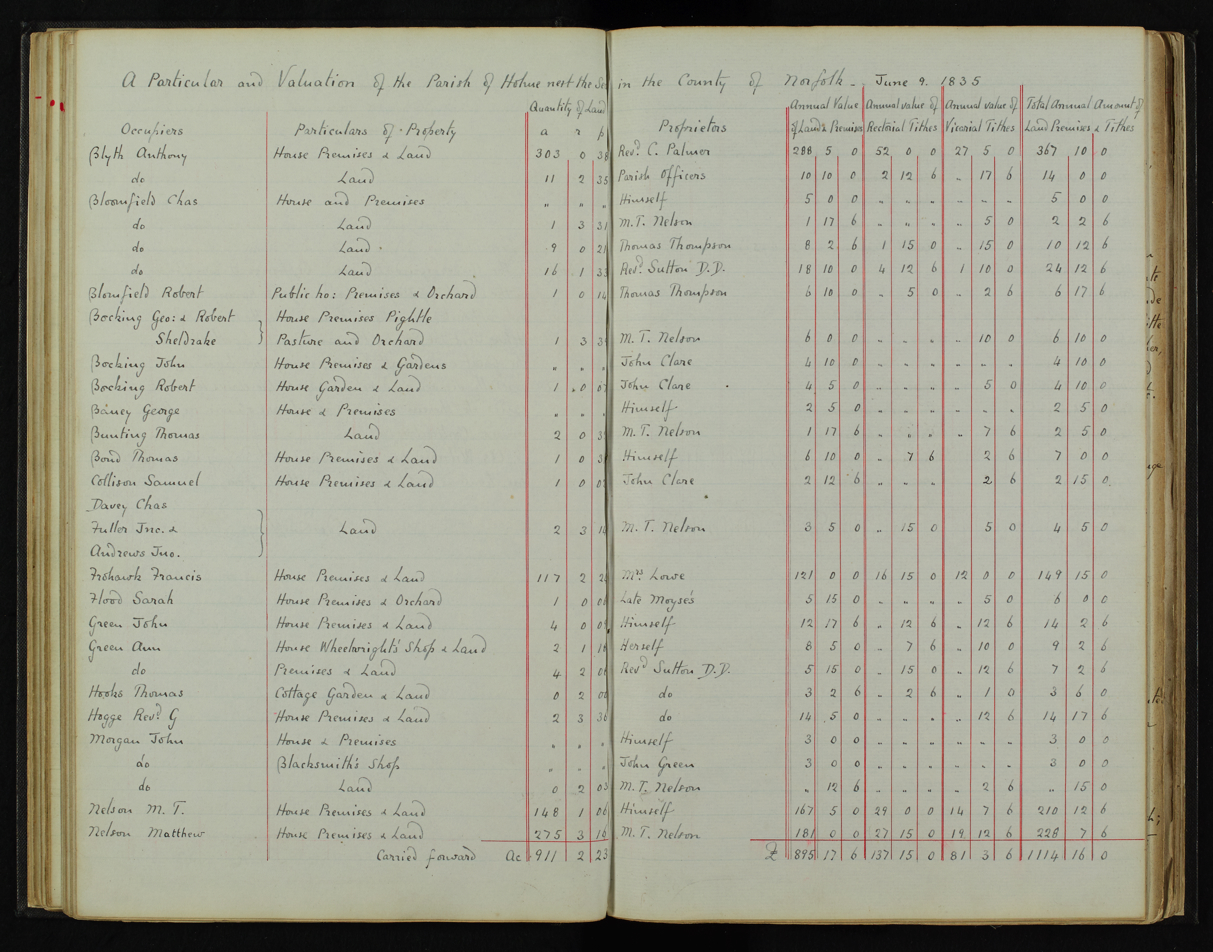 A Particular and Valuation of the Parish of Holme next the Sea in the County of Norfolk - June 9. 1835
Quantity of Land Annual Value Annual value of Annual value of Total Annual Amount of
Occupiers Particulars of Property a r p Proprietors of Land & Premises Rectorial Tithes Vicarial Tithes Land Premises & Tithes
Blyth Anthony House Premises & Land 303 0 38 Revd. C. Palmer 288 5 0 52 0 0 27 5 0 367 10 0
do Land 11 2 35 Parish Officers 10 10 0 2 12 6 „ 17 6 14 0 0
Bloomfield Chas House and Premises „ „ „ Himself 5 0 0 „ „ „ „ „ „ 5 0 0
do Land 1 3 31 M. T. Nelson 1 17 6 „ „ „ „ 5 0 2 2 6
do Land 9 0 21 Thomas Thompson 8 2 6 1 15 0 „ 15 0 10 12 6
do Land 16 1 33 Revd. Sutton D.D. 18 10 0 4 12 6 1 10 0 24 12 6
Blomfield Robert Public ho: Premises & Orchard 1 0 14 Thomas Thompson 6 10 0 „ 5 0 „ 2 6 6 17 6
Bocking Geo: & Robert House Premises Pightle
Sheldrake } Pasture and Orchard 1 3 M. T. Nelson 6 0 0 „ „ „ „ 10 0 6 10 0
Bocking John House Premises & Gardens „ „ „ John Clare 4 10 0 „ „ „ „ „ „ 4 10 0
Bocking Robert House Garden & Land 1 0 07 John Clare 4 5 0 „ „ „ „ 5 0 4 10 0
Baney George House & Premises „ „ „ Himself 2 5 0 „ „ „ „ „ „ 2 5 0
Bunting Thomas Land 2 0 M. T. Nelson 1 17 6 „ „ „ „ 7 6 2 5 0
Bond Thomas House Premises & Land 1 0 Himself 6 10 0 „ 7 6 2 6 7 0 0
Collison Samuel House Premises & Land 1 0 John Clare 2 12 6 „ „ „ 2 6 2 15 0
Davey Chas
Fuller Jno. & } Land 2 3 M. T. Nelson 3 5 0 „ 15 0 5 0 4 5 0
Andrews Jno.
Frohawk Francis House Premises & Land 117 2 Mrs Lowe 121 0 0 16 15 0 12 0 0 149 15 0
Flood Sarah House Premises & Orchard 1 0 Late Moyse's 5 15 0 „ „ „ „ 5 0 6 0 0
Green John House Premises & Land 4 0 Himself 12 17 6 „ 12 6 „ 12 6 14 2 6
Green Ann House Wheelwright's Shop & Land 2 1 Herself 8 5 0 „ 7 6 „ 10 0 9 2 6
do Premises & Land 4 2 Revd Sutton D.D. 5 15 0 „ 15 0 „ 12 6 7 2 6
Hooks Thomas Cottage Garden & Land 0 2 do 3 2 6 „ 2 6 „ 1 0 3 6 0
Hogge Revd. G House Premises & Land 2 3 36 do 14 5 0 „ „ „ „ 12 6 14 17 6
Morgan John House & Premises „ „ „ Himself 3 0 0 „ „ „ „ „ „ 3 0 0
do Blacksmith's Shop „ „ „ John Green 3 0 0 „ „ „ „ „ „ 3 0 0
do Land 0 2 03 M. T. Nelson „ 12 6 „ „ „ „ 2 6 „ 15 0
Nelson M. T. House Premises & Land 148 1 06 Himself 167 5 0 29 0 0 14 7 6 210 12 6
Nelson Matthew House Premises & Land 275 3 16 M. T. Nelson 181 0 0 27 15 0 19 12 6 228 7 6
Carried forward Ac 911 2 23 £ 895 17 6 137 15 0 81 3 6 1114 16 0